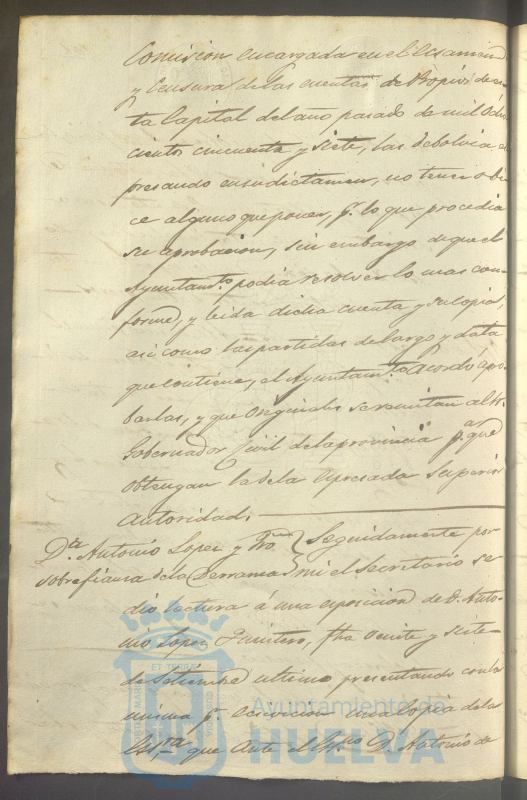 Comision encargada en el Ecsamen
y Censura de las cuentas de Propios de es-
ta Capital del año pasado de mil Ocho
ciento cincuenta y siete, las debolvia es
presando en su dictamen, no tener obi
ce alguno que poner, p.r lo que procedia
su aprobacion, sin embargo de que el
Ayuntam.to podia resolver lo mas con-
forme, y leida dicha cuenta y su copia,
asi como las partidas de cargo y data
que contiene, el Ayuntam.to acordó apro-
barlas, y que Originales se remitan al
Gobernador Civil de la provincia p.a que
obtengan la de la espresada superior
autoridad.
D.n Antonio Lopez y
sobre fianza de la Derrama
Seguidamente por
mi el Secretario se
dio lectura á una esposicion de D. Anto-
nio Lopez Quintero, fha veinte y siete
de Setiembre ultimo presentando con la
misma p.r una Copia de las
que ante el D. Antonio de
ET TERRÆ
Ayuntamiento de
HUELVA